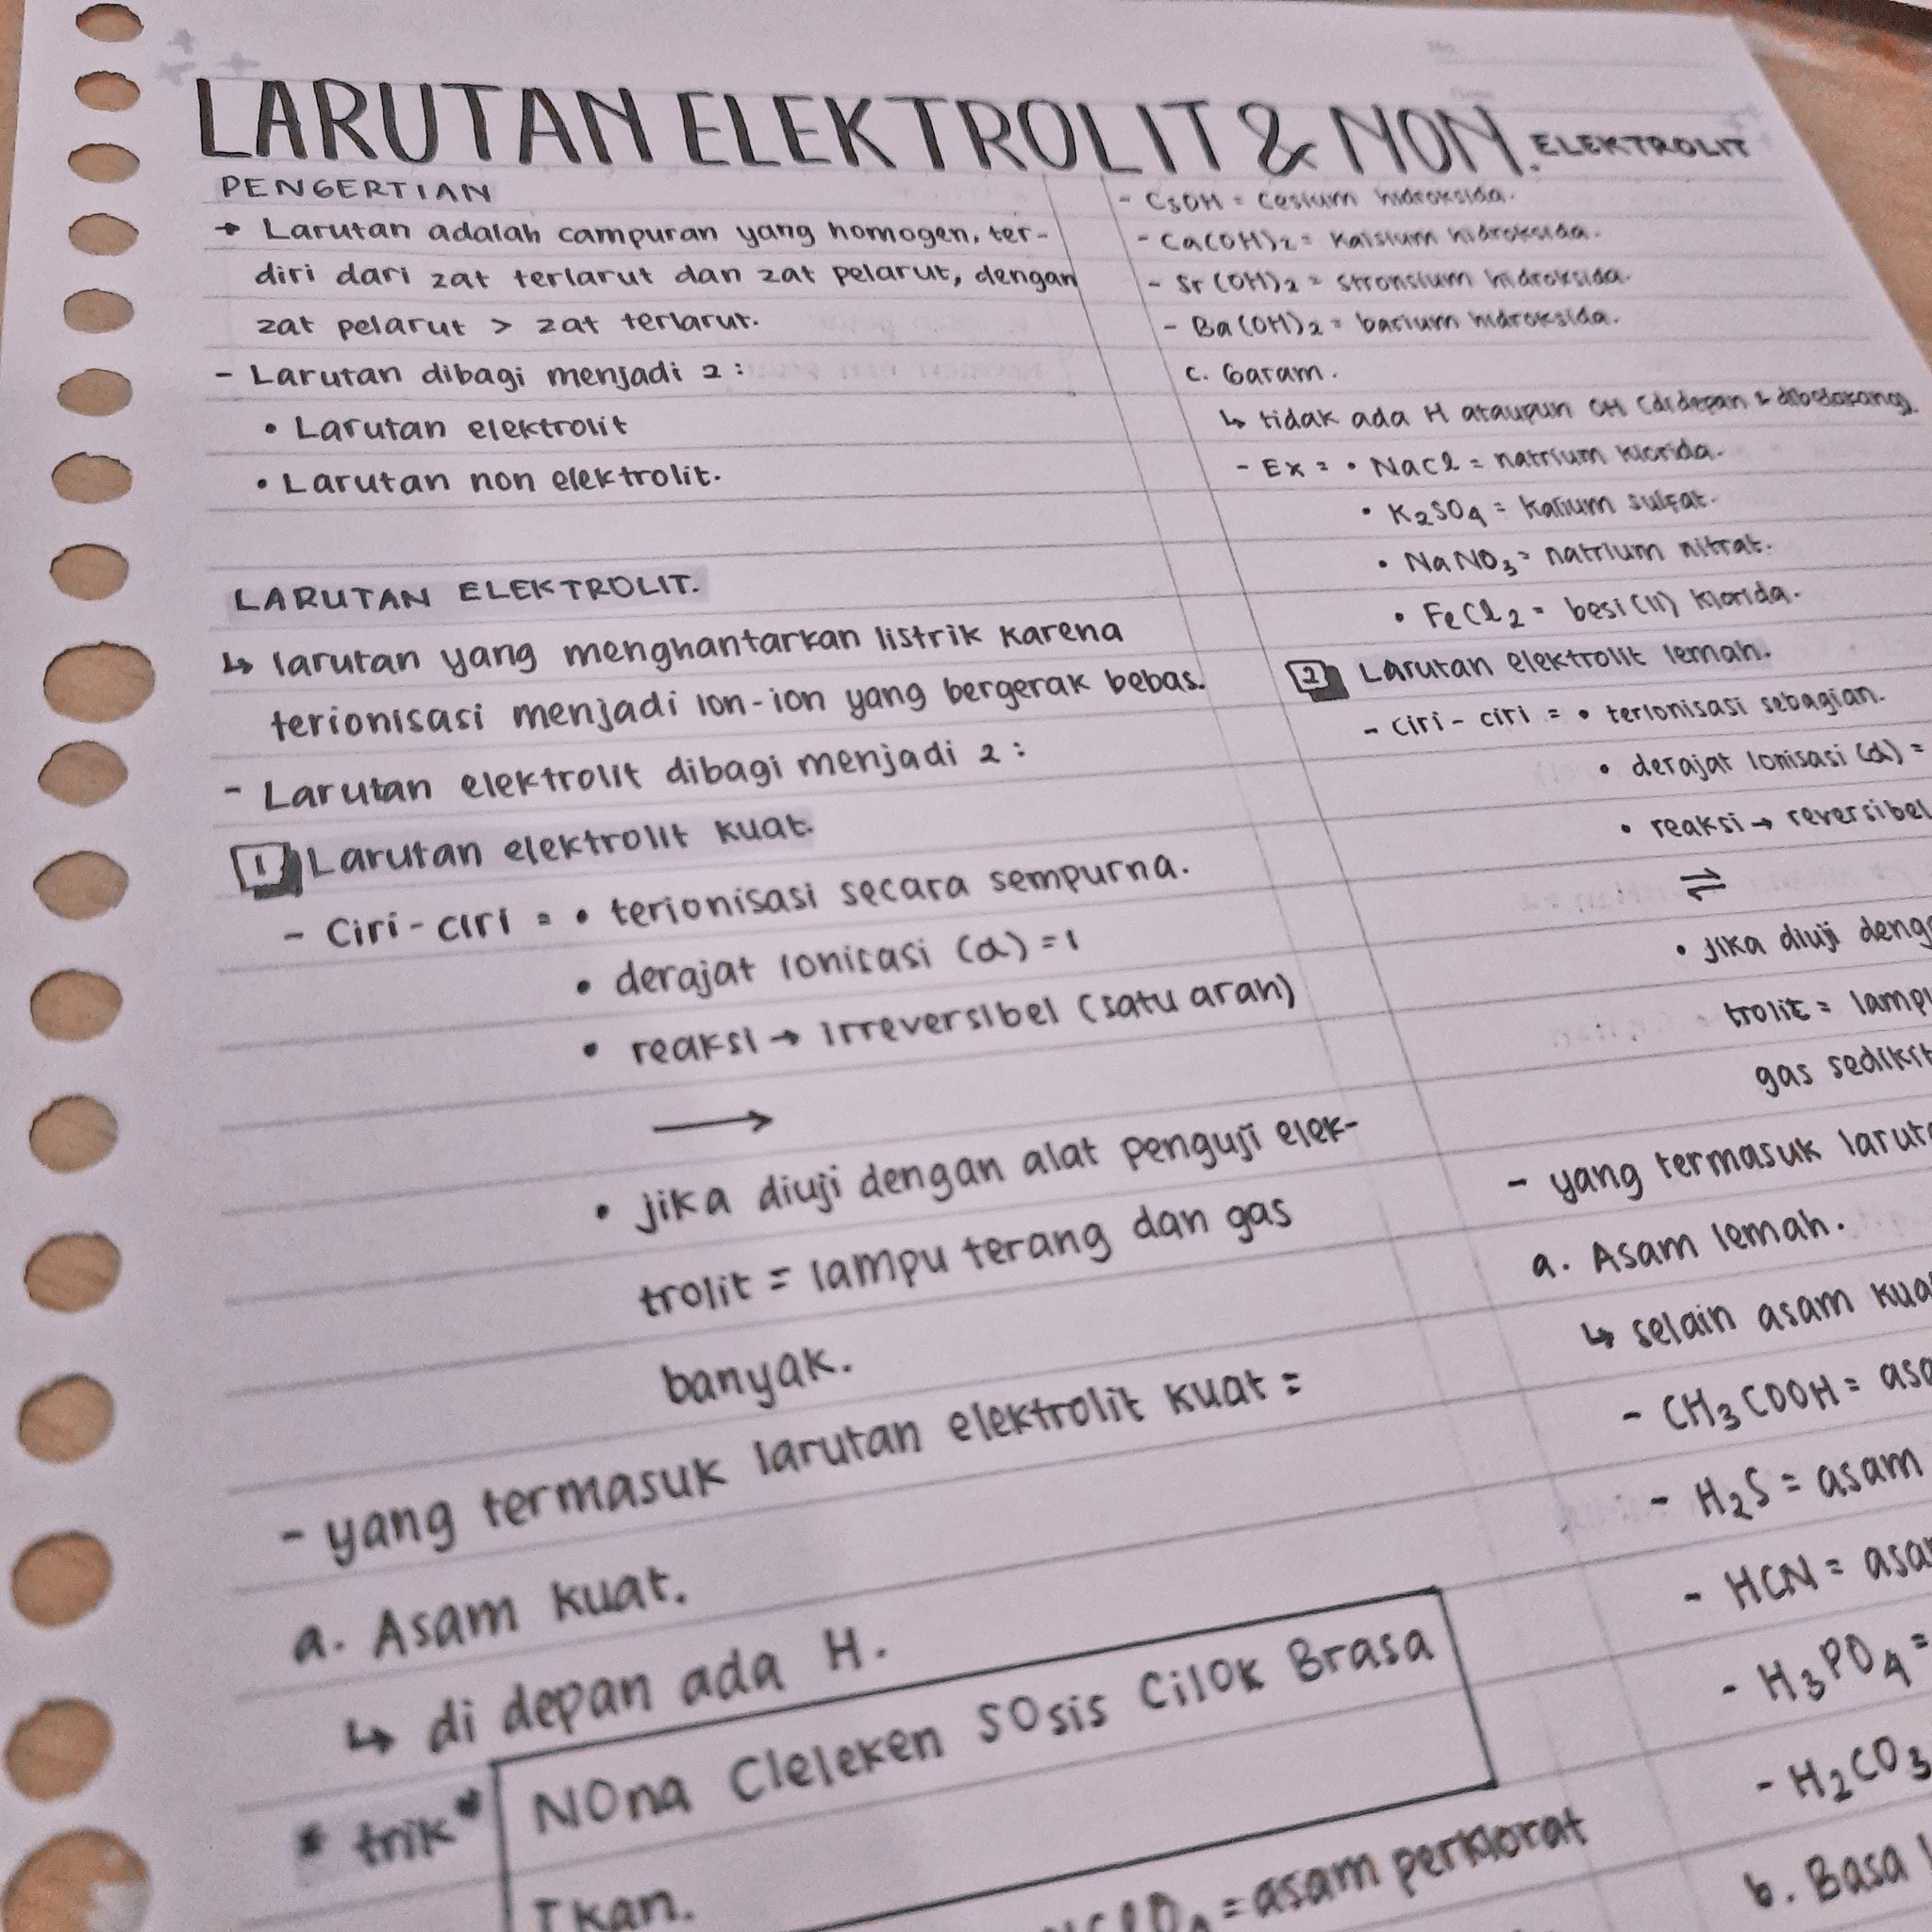 LARUTAN ELEKTROLIT & NON. ELEKTROLIT
PENGERTIAN
→ Larutan adalah campuran yang homogen, ter-
diri dari zat terlarut dan zat pelarut, dengan
zat pelarut > zat terlarut.
- Larutan dibagi menjadi 2 :
• Larutan elektrolit
• Larutan non elektrolit.
LARUTAN ELEKTROLIT.
↳ larutan yang menghantarkan listrik karena
terionisasi menjadi ion-ion yang bergerak bebas.
- Larutan elektrolit dibagi menjadi 2 :
1 Larutan elektrolit kuat.
- Ciri-ciri = • terionisasi secara sempurna.
• derajat ionisasi (α) = 1
• reaksi → irreversibel (satu arah)
→
• jika diuji dengan alat penguji elek-
trolit = lampu terang dan gas
banyak.
- yang termasuk larutan elektrolit kuat =
a. Asam kuat.
↳ di depan ada H.
* trik NOna Cleleken SOsis CilOk Brasa
Ikan.
= asam perklorat
- CsOH = Cesium hidroksida.
- Ca(OH)2 = Kalsium hidroksida.
- Sr(OH)2 = stronsium hidroksida.
- Ba(OH)2 = barium hidroksida.
c. Garam.
↳ tidak ada H ataupun OH (didepan & dibelakang).
- Ex = • NaCl = natrium klorida.
• K2SO4 = Kalium sulfat.
• NaNO3 = natrium nitrat.
• FeCl2 = besi(II) klorida.
2 Larutan elektrolit lemah.
- ciri-ciri = • terionisasi sebagian.
• derajat ionisasi (α) =
• reaksi → reversibel
⇌
• jika diuji deng
trolit = lampu
gas sedikit
- yang termasuk laruta
a. Asam lemah.
↳ selain asam kua
- CH3COOH = asa
- H2S = asam
- HCN = asa
- H3PO4 =
- H2CO3
b. Basa